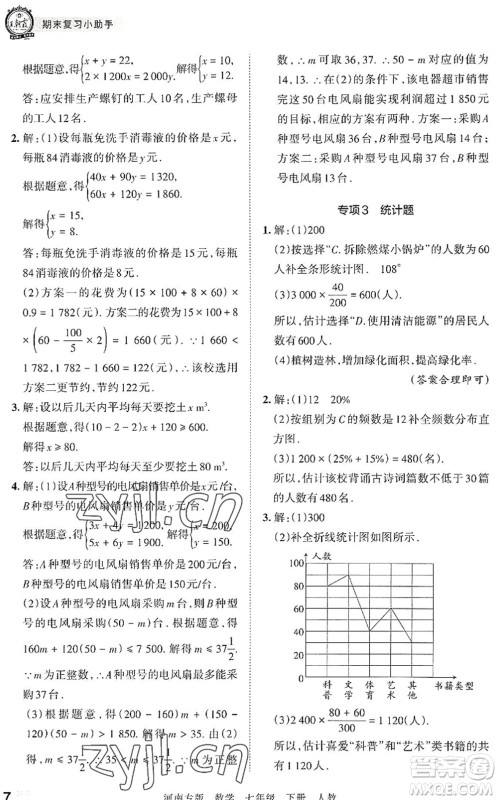 期末复习小助手
根据题意,得{x+y=22, 2×1 200x=2 000y. 解得{x=10, y=12.
答:应安排生产螺钉的工人10名,生产螺母
的工人12名.
2. 解:(1)设每瓶免洗手消毒液的价格是x元,
每瓶84消毒液的价格是y元.
根据题意,得{40x+90y=1 320, 60x+120y=1 860.
解得{x=15, y=8.
答:每瓶免洗手消毒液的价格是15元,每瓶
84消毒液的价格是8元.
(2)方案一的花费为(15×100+8×60)×
0.9=1 782(元). 方案二的花费为15×100+8
×(60-100/5×2)=1 660(元). ∵1 660<
1 782,1 782-1 660=122(元),∴该校选用
方案二更节约钱,节约122元.
3. 解:设以后几天内平均每天要挖土x m³.
根据题意,得(10-2-2)x+120≥600.
解得x≥80.
答:以后几天内平均每天至少要挖土80 m³.
4. 解:(1)设A种型号的电风扇销售单价是x元/台,
B种型号的电风扇销售单价是y元/台.
根据题意,得{3x+4y=1 200, 5x+6y=1 900. 解得{x=200, y=150.
答:A种型号的电风扇销售单价是200元/台,
B种型号的电风扇销售单价是150元/台.
(2)设A种型号的电风扇采购m台,则B种型
号的电风扇采购(50-m)台. 根据题意,得
160m+120(50-m)≤7 500. 解得m≤37 1/2.
∵m为正整数,∴A种型号的电风扇最多能采
购37台.
(3)根据题意,得(200-160)m+(150-
120)(50-m)>1 850. 解得m>35. ∵由(2)
得m≤37 1/2,∴35<m≤37 1/2. ∵m为正整
数,∴m的值为36,37. ∴50-m的值为
14,13. ∴在(2)的条件下,该电器超市销
售完这50台电风扇能实现利润超过1 850元
的目标,相应的方案有两种. 方案一:采购A
种型号电风扇36台,B种型号电风扇14台;
方案二:采购A种型号电风扇37台,B种型号
电风扇13台.
专项3 统计题
1. 解:(1)200
(2)按选择“C. 拆除燃煤小锅炉”的人数为60
人补全条形统计图. 108°
(3)3 000×40/200=600(人).
所以,估计选择“D. 使用清洁能源”的居民人
数有600人.
(4)植树造林,增加绿化面积,提升绿化率.
(答案合理即可)
2. 解:(1)12 20%
(2)按组别为C的频数是12补全频数分布直
方图.
(3)1 200×(25%+15%)=480(名).
所以,估计该校背诵古诗词篇数不低于6首的
人数有480名.
3. 解:(1)300
(2)补全折线统计图如图所示.
人数
100
90
80
70
60
50
40
30
20
10
0
科普 文学 体育 艺术 其他 书籍类型
(3)2 400×(80+60)/300=1 120(人).
所以,估计喜爱“科普”和“艺术”类书籍的一
共有1 120人.
7 河南专版 数学 七年级 下册 人教
zyjl.cn